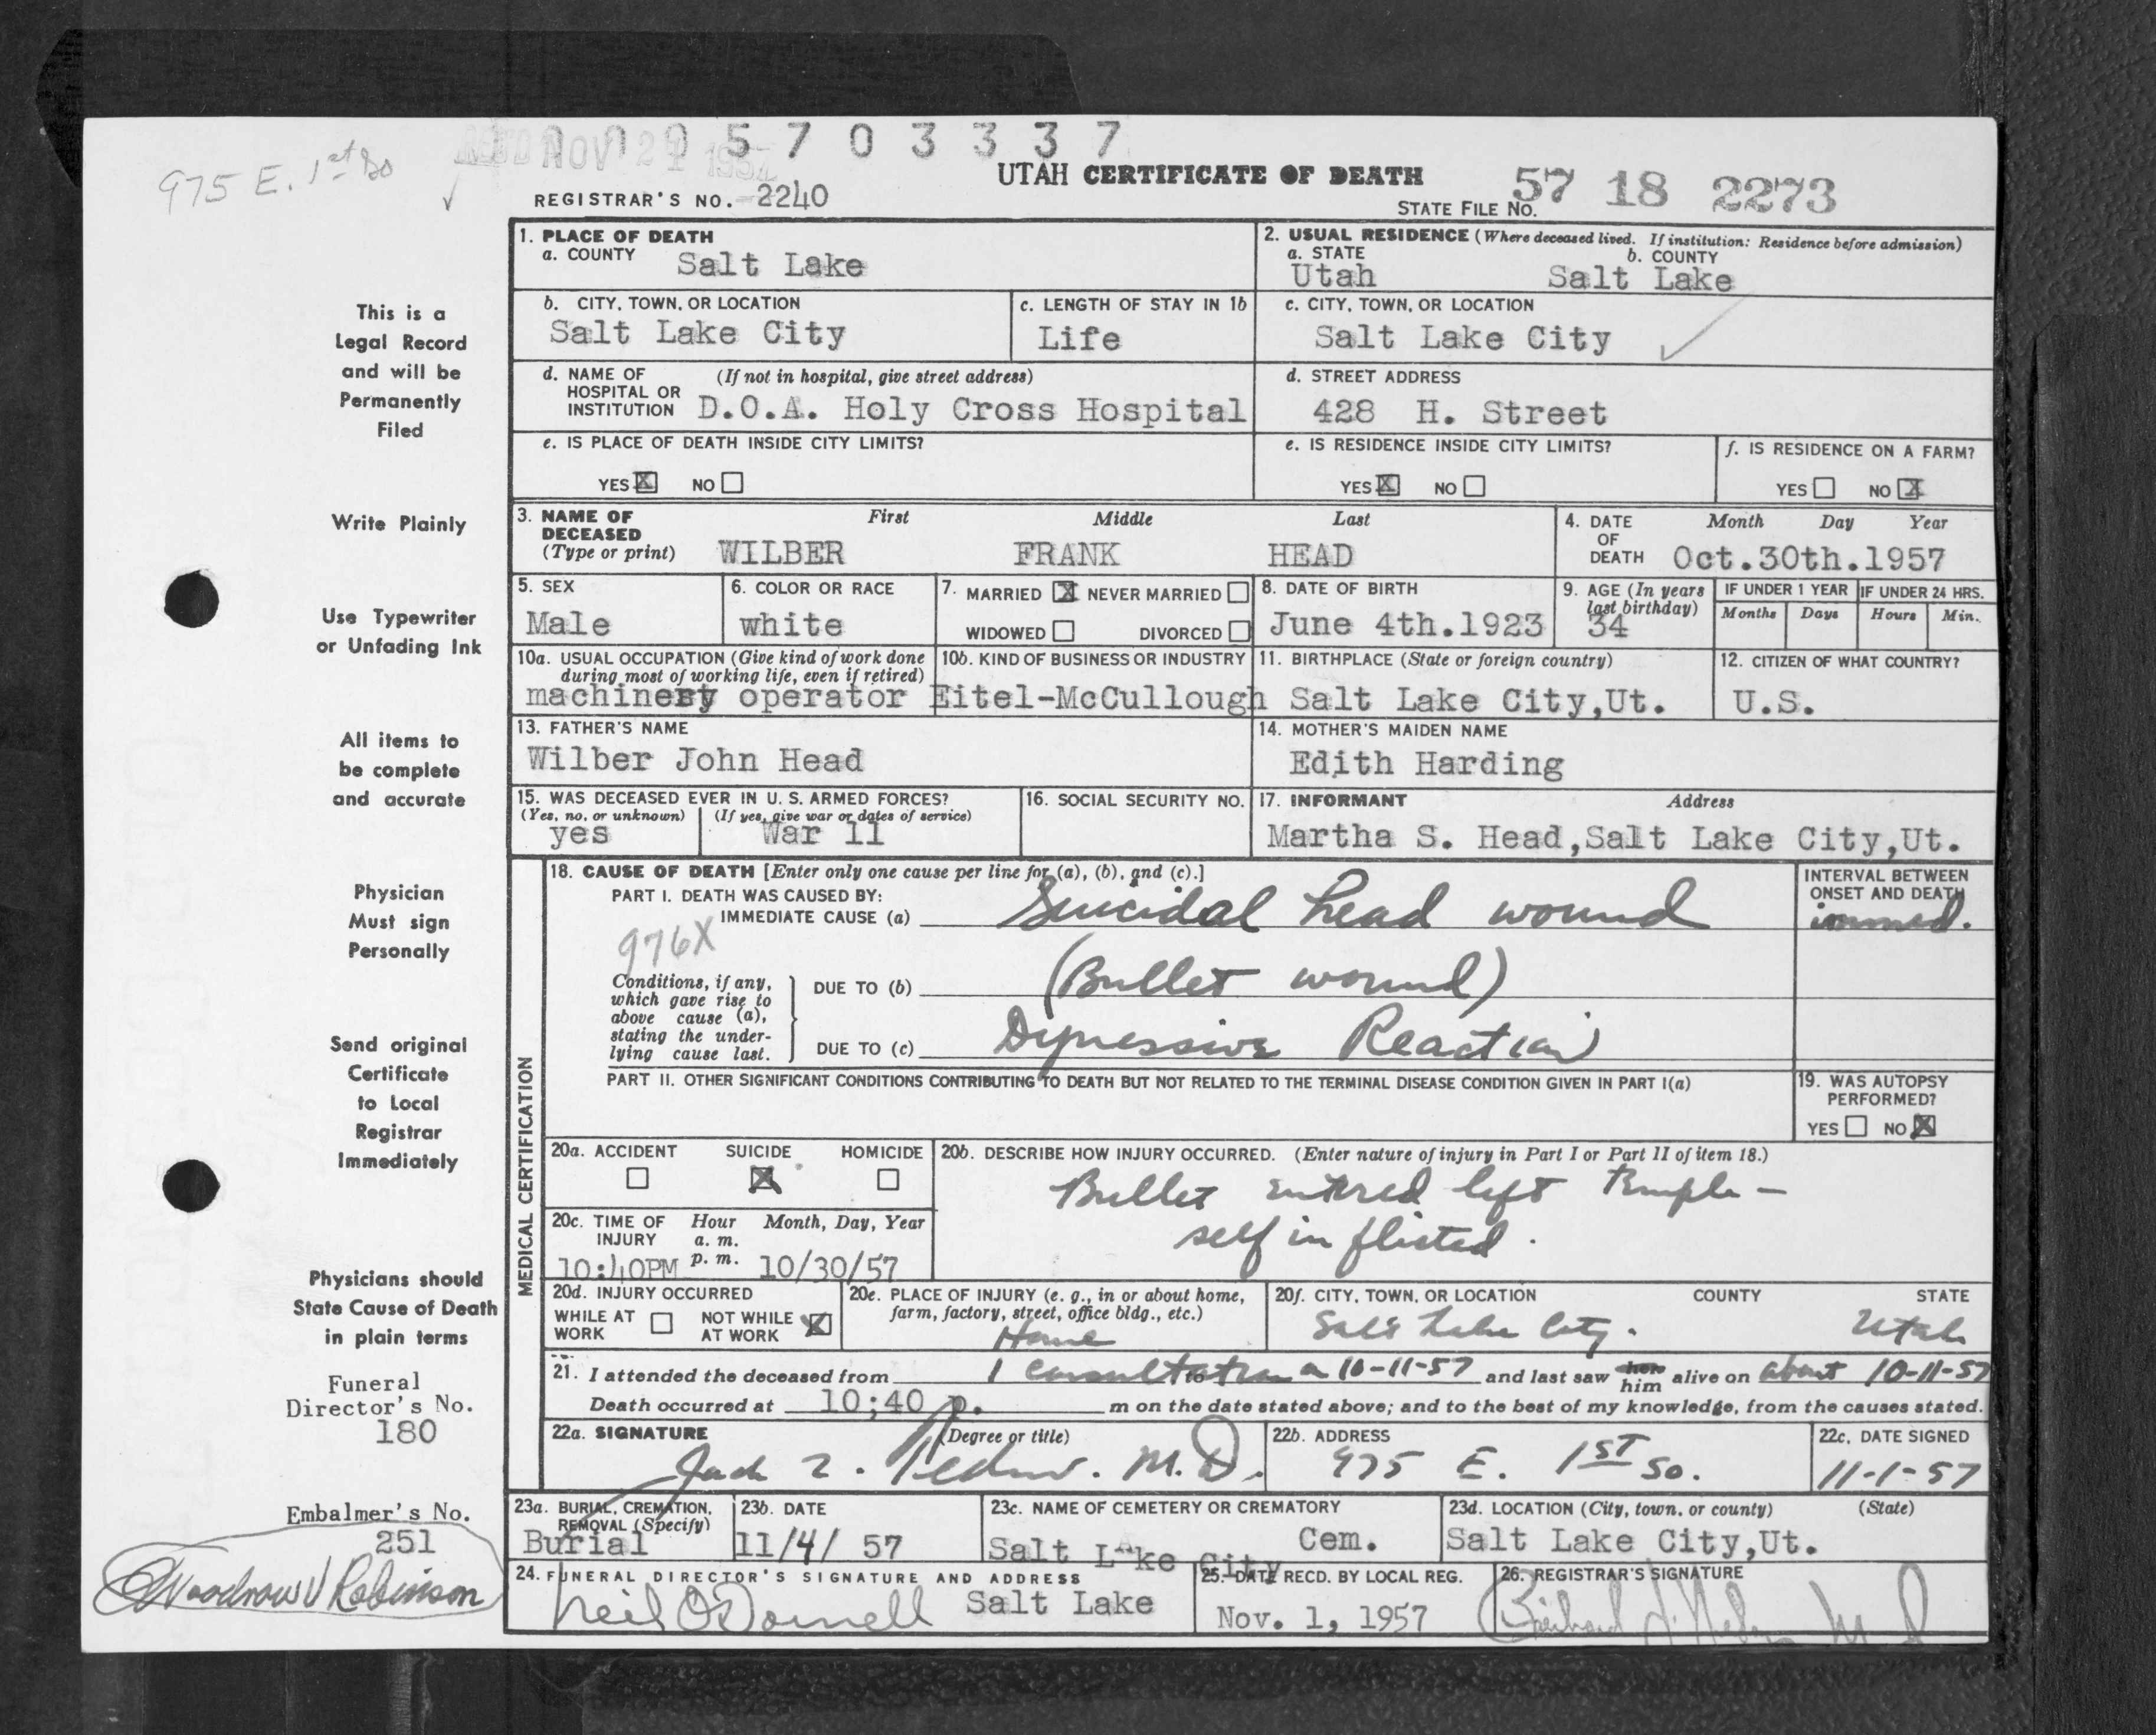 975 E. 1st So
NOV 21 1957
5 7 0 3 3 3 7
UTAH CERTIFICATE OF DEATH
REGISTRAR'S NO. 2240
STATE FILE NO. 57 18 2273
1. PLACE OF DEATH
a. COUNTY Salt Lake
2. USUAL RESIDENCE (Where deceased lived. If institution: Residence before admission)
a. STATE Utah b. COUNTY Salt Lake
b. CITY, TOWN, OR LOCATION Salt Lake City
c. LENGTH OF STAY IN 1b Life
c. CITY, TOWN, OR LOCATION Salt Lake City
d. NAME OF HOSPITAL OR INSTITUTION (If not in hospital, give street address) D.O.A. Holy Cross Hospital
d. STREET ADDRESS 428 H. Street
e. IS PLACE OF DEATH INSIDE CITY LIMITS?
YES X NO
e. IS RESIDENCE INSIDE CITY LIMITS?
YES X NO
f. IS RESIDENCE ON A FARM?
YES NO X
3. NAME OF DECEASED (Type or print) First Middle Last
WILBER FRANK HEAD
4. DATE OF DEATH Month Day Year
Oct.30th.1957
5. SEX Male
6. COLOR OR RACE white
7. MARRIED X NEVER MARRIED
WIDOWED DIVORCED
8. DATE OF BIRTH June 4th.1923
9. AGE (In years last birthday) 34
IF UNDER 1 YEAR Months Days
IF UNDER 24 HRS. Hours Min.
10a. USUAL OCCUPATION (Give kind of work done during most of working life, even if retired)
machinery operator
10b. KIND OF BUSINESS OR INDUSTRY Eitel-McCullough
11. BIRTHPLACE (State or foreign country) Salt Lake City,Ut.
12. CITIZEN OF WHAT COUNTRY? U.S.
13. FATHER'S NAME
Wilber John Head
14. MOTHER'S MAIDEN NAME
Edith Harding
15. WAS DECEASED EVER IN U. S. ARMED FORCES?
(Yes, no, or unknown) yes (If yes, give war or dates of service) War 11
16. SOCIAL SECURITY NO.
17. INFORMANT Address
Martha S. Head,Salt Lake City,Ut.
MEDICAL CERTIFICATION
18. CAUSE OF DEATH [Enter only one cause per line for (a), (b), and (c).]
PART I. DEATH WAS CAUSED BY:
IMMEDIATE CAUSE (a) Suicidal head wound
INTERVAL BETWEEN ONSET AND DEATH
immed.
976X
Conditions, if any, which gave rise to above cause (a), stating the underlying cause last.
DUE TO (b) (Bullet wound)
DUE TO (c) Depressive Reaction
PART II. OTHER SIGNIFICANT CONDITIONS CONTRIBUTING TO DEATH BUT NOT RELATED TO THE TERMINAL DISEASE CONDITION GIVEN IN PART I(a)
19. WAS AUTOPSY PERFORMED?
YES NO X
20a. ACCIDENT SUICIDE X HOMICIDE
20b. DESCRIBE HOW INJURY OCCURRED. (Enter nature of injury in Part I or Part II of item 18.)
Bullet entered left temple -
self inflicted.
20c. TIME OF INJURY Hour a. m. p. m. Month, Day, Year
10:40PM 10/30/57
20d. INJURY OCCURRED
WHILE AT WORK NOT WHILE AT WORK X
20e. PLACE OF INJURY (e. g., in or about home, farm, factory, street, office bldg., etc.)
Home
20f. CITY, TOWN, OR LOCATION COUNTY STATE
Salt Lake City. Utah
21. I attended the deceased from 1 consultation on 10-11-57 and last saw her him alive on about 10-11-57
Death occurred at 10;40 p. m on the date stated above; and to the best of my knowledge, from the causes stated.
22a. SIGNATURE (Degree or title)
Jack M.D.
22b. ADDRESS
975 E. 1ST So.
22c. DATE SIGNED
11-1-57
23a. BURIAL, CREMATION, REMOVAL (Specify) Burial
23b. DATE 11/4/ 57
23c. NAME OF CEMETERY OR CREMATORY
Salt Lake City Cem.
23d. LOCATION (City, town, or county) (State)
Salt Lake City,Ut.
24. FUNERAL DIRECTOR'S SIGNATURE AND ADDRESS
Neil O'Donnell Salt Lake
25. DATE RECD. BY LOCAL REG.
Nov. 1, 1957
26. REGISTRAR'S SIGNATURE
This is a
Legal Record
and will be
Permanently
Filed
Write Plainly
Use Typewriter
or Unfading Ink
All items to
be complete
and accurate
Physician
Must sign
Personally
Send original
Certificate
to Local
Registrar
Immediately
Physicians should
State Cause of Death
in plain terms
Funeral
Director's No.
180
Embalmer's No.
251
Woodrow V Robinson